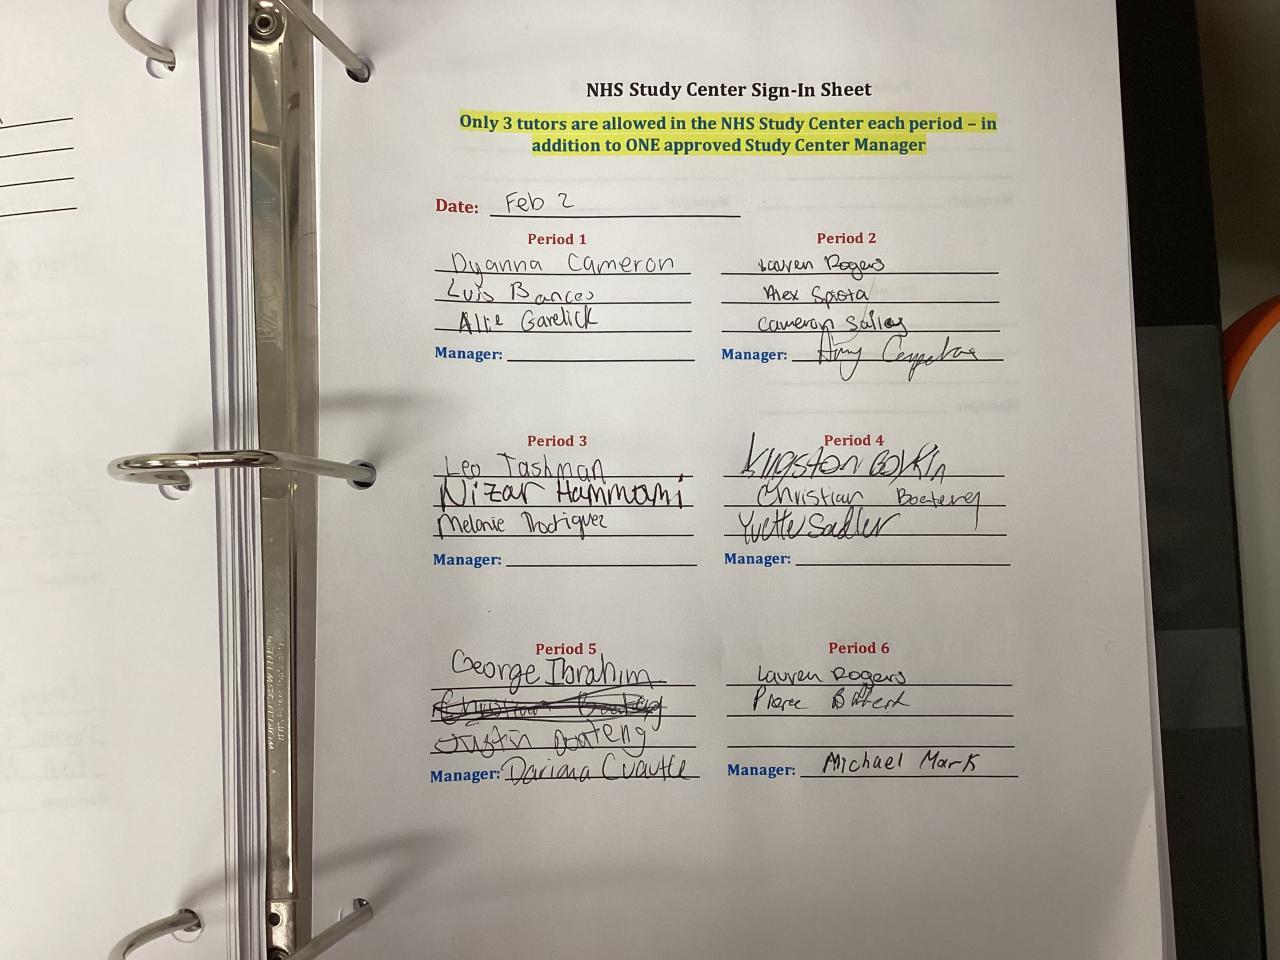 NHS Study Center Sign-In Sheet
Only 3 tutors are allowed in the NHS Study Center each period – in
addition to ONE approved Study Center Manager
Date: Feb 2
Period 1
Dyanna Cameron
Luis Bances
Allie Garelick
Manager:
Period 2
Lauren Rogers
Alex Spiota
Cameron Salley
Manager: Amy
Period 3
Leo Tashman
Nizar Hammami
Melanie Rodriguez
Manager:
Period 4
Kingston Boykin
Christian Boateng
Yvette Sadler
Manager:
Period 5
George Ibrahim
Justin Boateng
Manager: Dariana Cuautle
Period 6
Lauren Rogers
Pierce
Manager: Michael Mark